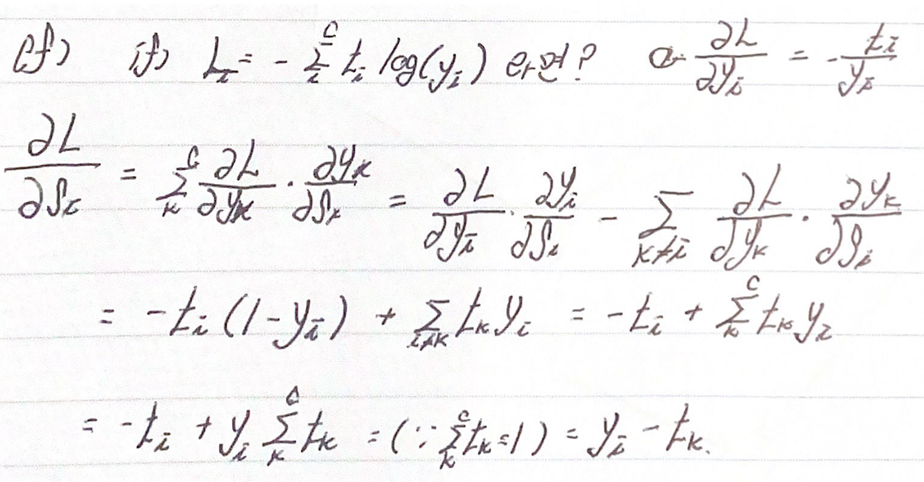 cf) if) L_i = - Σ_i^c t_i log(y_i) 라면? ∂L/∂y_i = - t_i/y_i
∂L/∂s_i = Σ_k^c ∂L/∂y_k · ∂y_k/∂s_i = ∂L/∂y_i · ∂y_i/∂s_i - Σ_{k≠i} ∂L/∂y_k · ∂y_k/∂s_i
= -t_i (1-y_i) + Σ_{i≠k} t_k y_i = -t_i + Σ_k^c t_k y_i
= -t_i + y_i Σ_k^c t_k = (∵ Σ_k^c t_k = 1) = y_i - t_k.